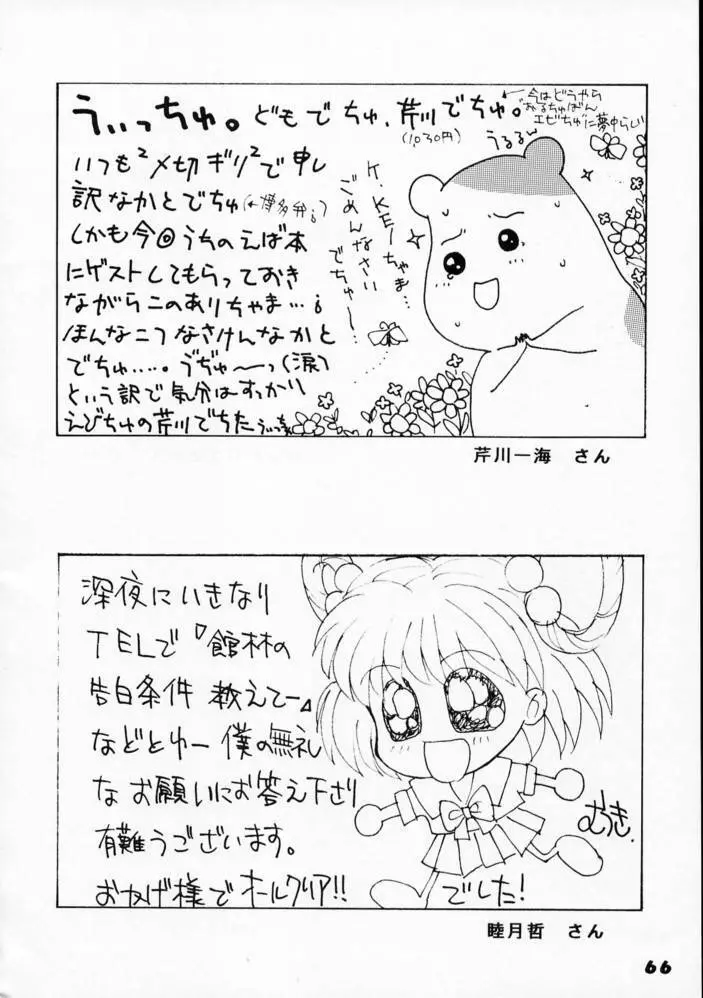 うぃっちゅ。どもでちゅ、芹川でちゅ。
(1030円)
←今はどうやら
あるちゅばん
エビちゅに夢中らしい
うるるぅ
いつも²〆切ギリ²で申し
訳なかとでちゅ(←博多弁。)
しかも今回うちのえば本
にゲストしてもらっておき
ながらこのありちゃま…。
ほんなこつなさけんなかと
でちゅ….。うぢゅ〜っ(涙)
という訳で気分はすっかり
えびちゅの芹川でちた
K.KEIちゃま…
ごめんなさい
でちゅ〜…
芹川一海　さん
深夜にいきなり
TELで『館林の
告白条件 教えてー』
などとゆー僕の無礼
なお願いにお答え下さり
有難うございます。
おかげ様でオールクリア!!
でした!
むつき.
睦月哲　さん
66